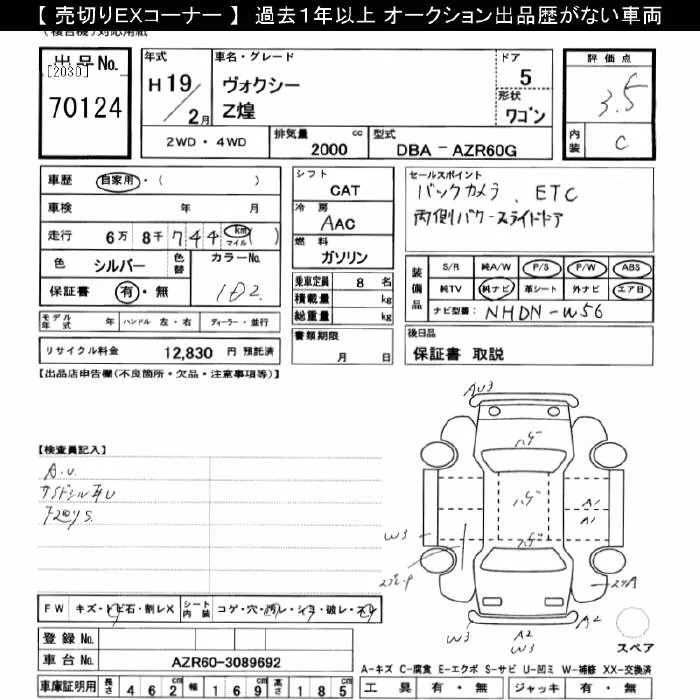 【 売切りEXコーナー 】 過去１年以上 オークション出品歴がない車両
出品No.
[2030]
70124
年式
H19/2月
車名・グレード
ヴォクシー
Z煌
ドア
5
形状
ワゴン
評価点
3.5
内装
C
2WD・4WD
排気量 cc
2000
型式
DBA - AZR60G
車歴 自家用・( )
車検 年 月
走行 6万 8千 7 4 4 km マイル ( )
色 シルバー 色替 カラーNo.
保証書 有・無 182
シフト
CAT
冷房
AAC
燃料
ガソリン
乗車定員 8 名
積載量 kg
総重量 kg
セールスポイント
バックカメラ、ETC
両側パワースライドドア
装備品
S/R 純A/W P/S P/W ABS
純TV 純ナビ 革シート 外ナビ エアB
ナビ型番: NHDN-W56
モデル年式 年 ハンドル 左・右 ディーラー・並行
リサイクル料金 12,830 円 預託済
書類期限
月 日
後日品
保証書 取説
【出品店申告欄(不良箇所・欠品・注意事項等)】
【検査員記入】
A.U.
AU3
ハゲ
ハゲ
ハゲ
A1
A1
W3
W3
A2
W3
A2
スペア
FW キズ・トビ石・割レX シート内装 コゲ・穴・汚レ・シミ・破レ・スレ
登録No.
車台No. AZR60-3089692
A-キズ C-腐食 E-エクボ S-サビ U-凹ミ W-補修 XX-交換済
車庫証明用 長さ 462cm 幅 169cm 高さ 185cm
工具 有・無 ジャッキ 有・無